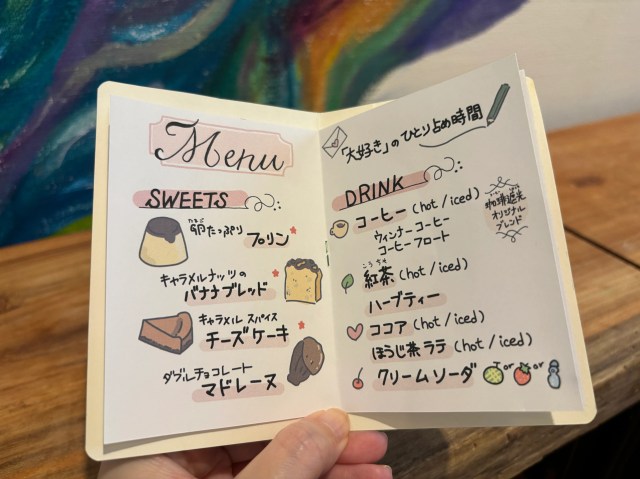 Menu
SWEETS
たまご
卵たっぷり
プリン
キャラメルナッツの
バナナブレッド
キャラメル スパイス
チーズケーキ
ダブルチョコレート
マドレーヌ
「大好き」のひとり占め時間
DRINK
コーヒー (hot/iced)
ウィンナーコーヒー
コーヒーフロート
珈琲遮光
オリジナル
ブレンド
こうちゃ
紅茶 (hot/iced)
ハーブティー
ココア (hot/iced)
ほうじ茶ラテ (hot/iced)
クリームソーダ or or